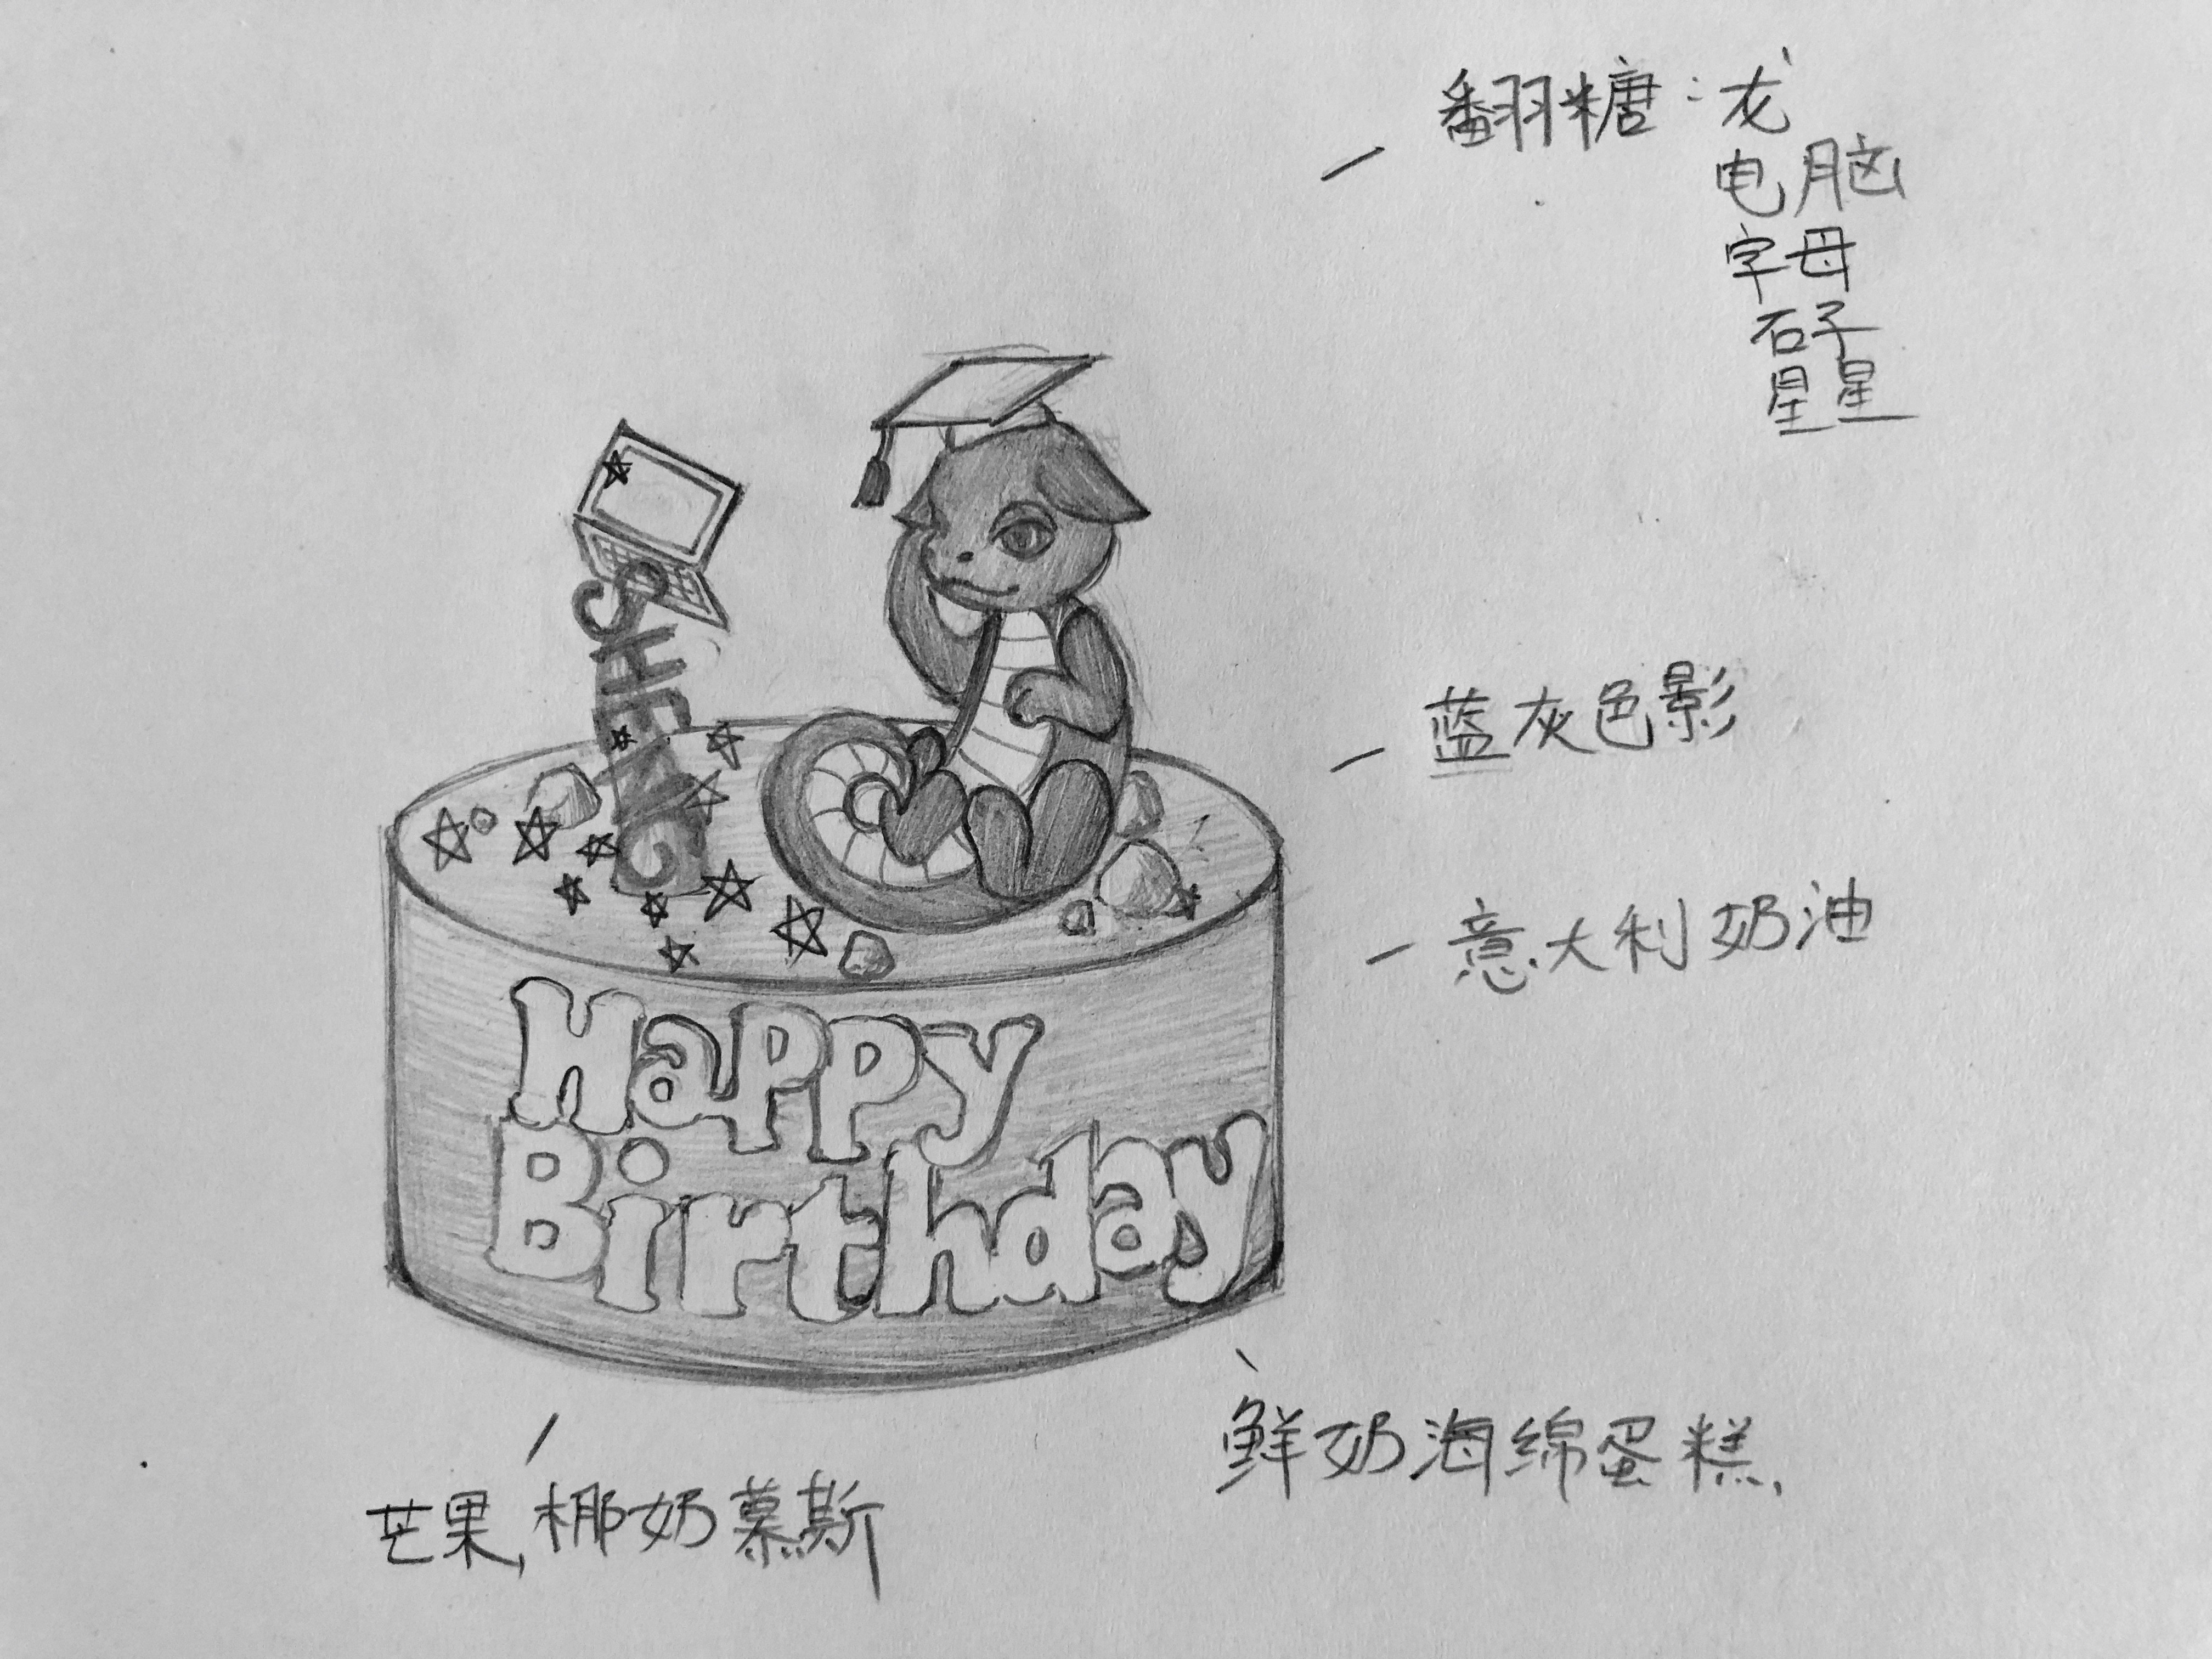 翻糖：龙
电脑
字母
石子
星星
SHENG
蓝灰色影
意大利奶油
Happy
Birthday
鲜奶海绵蛋糕.
芒果,椰奶慕斯